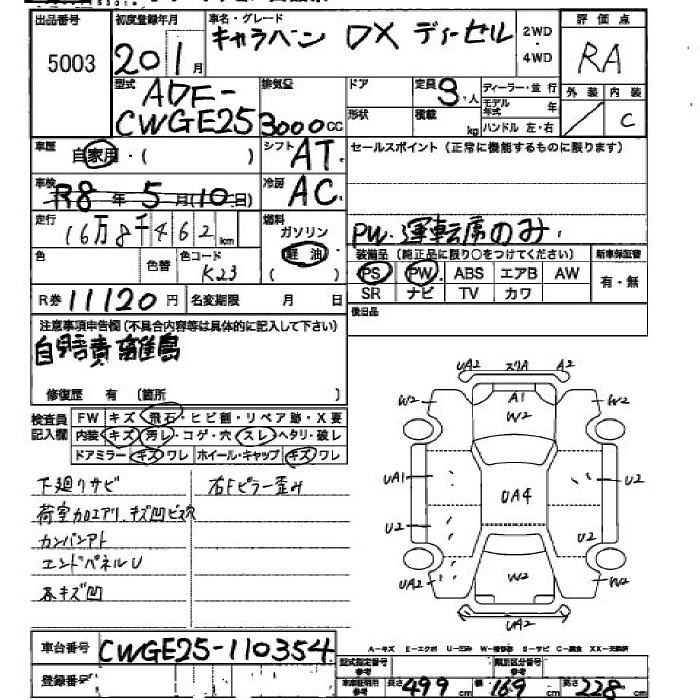 出品番号
5003
初度登録年月
20 1月
車名・グレード
キャラバン DX ディーゼル
2WD
・
4WD
評価点
RA
型式
ADF-
CWGE25
排気量
3000cc
ドア
形状
定員
9人
積載
kg
ディーラー・並行
モデル年式 年
ハンドル 左・右
外装 内装
／ C
車歴
自家用・( )
シフト
AT
セールスポイント (正常に機能するものに限ります)
PW.運転席のみ.
車検
R8年5月(10日)
冷房
AC
走行
16万8千462km
燃料
ガソリン
(軽油)
( )
色
色替
色コード
K23
R券 11120円
名変期限 月 日
装備品 (純正品に限り○をつけてください)
PS PW ABS エアB AW
SR ナビ TV カワ
新車保証書
有・無
後日品
注意事項申告欄(不具合内容等は具体的に記入して下さい)
自賠責離島
修復歴 有 〔箇所 〕
検査員
記入欄
FW キズ・飛石・ヒビ割・リペア跡・X要
内装 キズ・汚レ・コゲ・穴・スレ・ヘタリ・破レ
ドアミラー キズ・ワレ ホイール・キャップ キズ・ワレ
下廻りサビ
右Fピラー歪み
荷室加エアリ.キズ凹ビス穴
カンバンアト
エンドパネルU
各キズ凹
UA2 スリA A2
W2 A1 W2
W2
UA1 UA4 U2
U2 U2
UA2 W2 W2
UA2
A-キズ E-エクボ U-凹み W-補修跡 S-サビ C-腐食 XX-交換済
車台番号
CWGE25-110354
登録番号
型式指定番号
参考
類別区分番号
参考
車検証明用
参考
長さ 499cm 幅 169cm 高さ 228cm